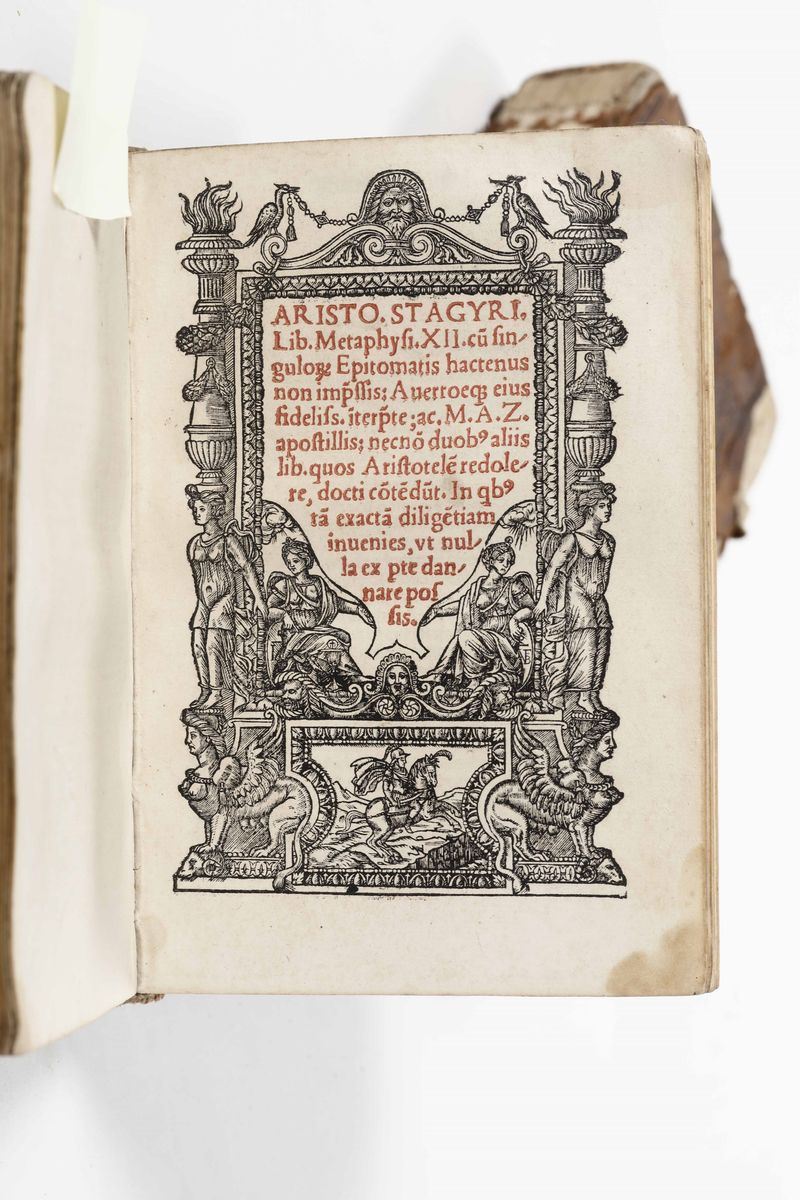 ARISTO. STAGYRI.
Lib. Metaphysi. XII. cū sin-
guloꝝ Epitomatis hactenus
non imp̄ssis; Auerroeqꝫ eius
fideliss. īterp̄te; ac. M. A. Z.
apostillis; necnō duobꝰ aliis
lib. quos Aristotelē redole-
re, docti cōtēdūt. In qbꝰ
tā exactā diligētiam
inuenies, vt nul-
la ex pte dan-
nare pos
sis.